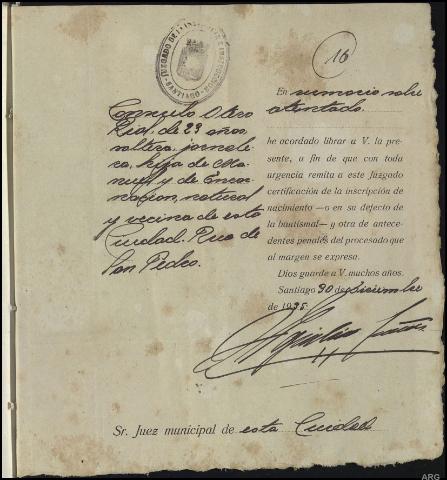 JUZGADO DE INSTRUCCION
SANTIAGO
16
En sumario sobre
atentado
Consuelo Otero
Rial, de 23 años,
soltera, jornale-
ra, hija de Ma-
nuel y de Encar-
nacion, natural
y vecina de esta
Ciudad. Rua de
San Pedro.
he acordado librar a V. la pre-
sente, a fin de que con toda
urgencia remita a este Juzgado
certificación de la inscripción de
nacimiento —o en su defecto de
la bautismal— y otra de antece-
dentes penales del procesado que
al margen se expresa.
Dios guarde a V. muchos años.
Santiago 30 de diciembre
de 1935
Sr. Juez municipal de esta Ciudad
ARG